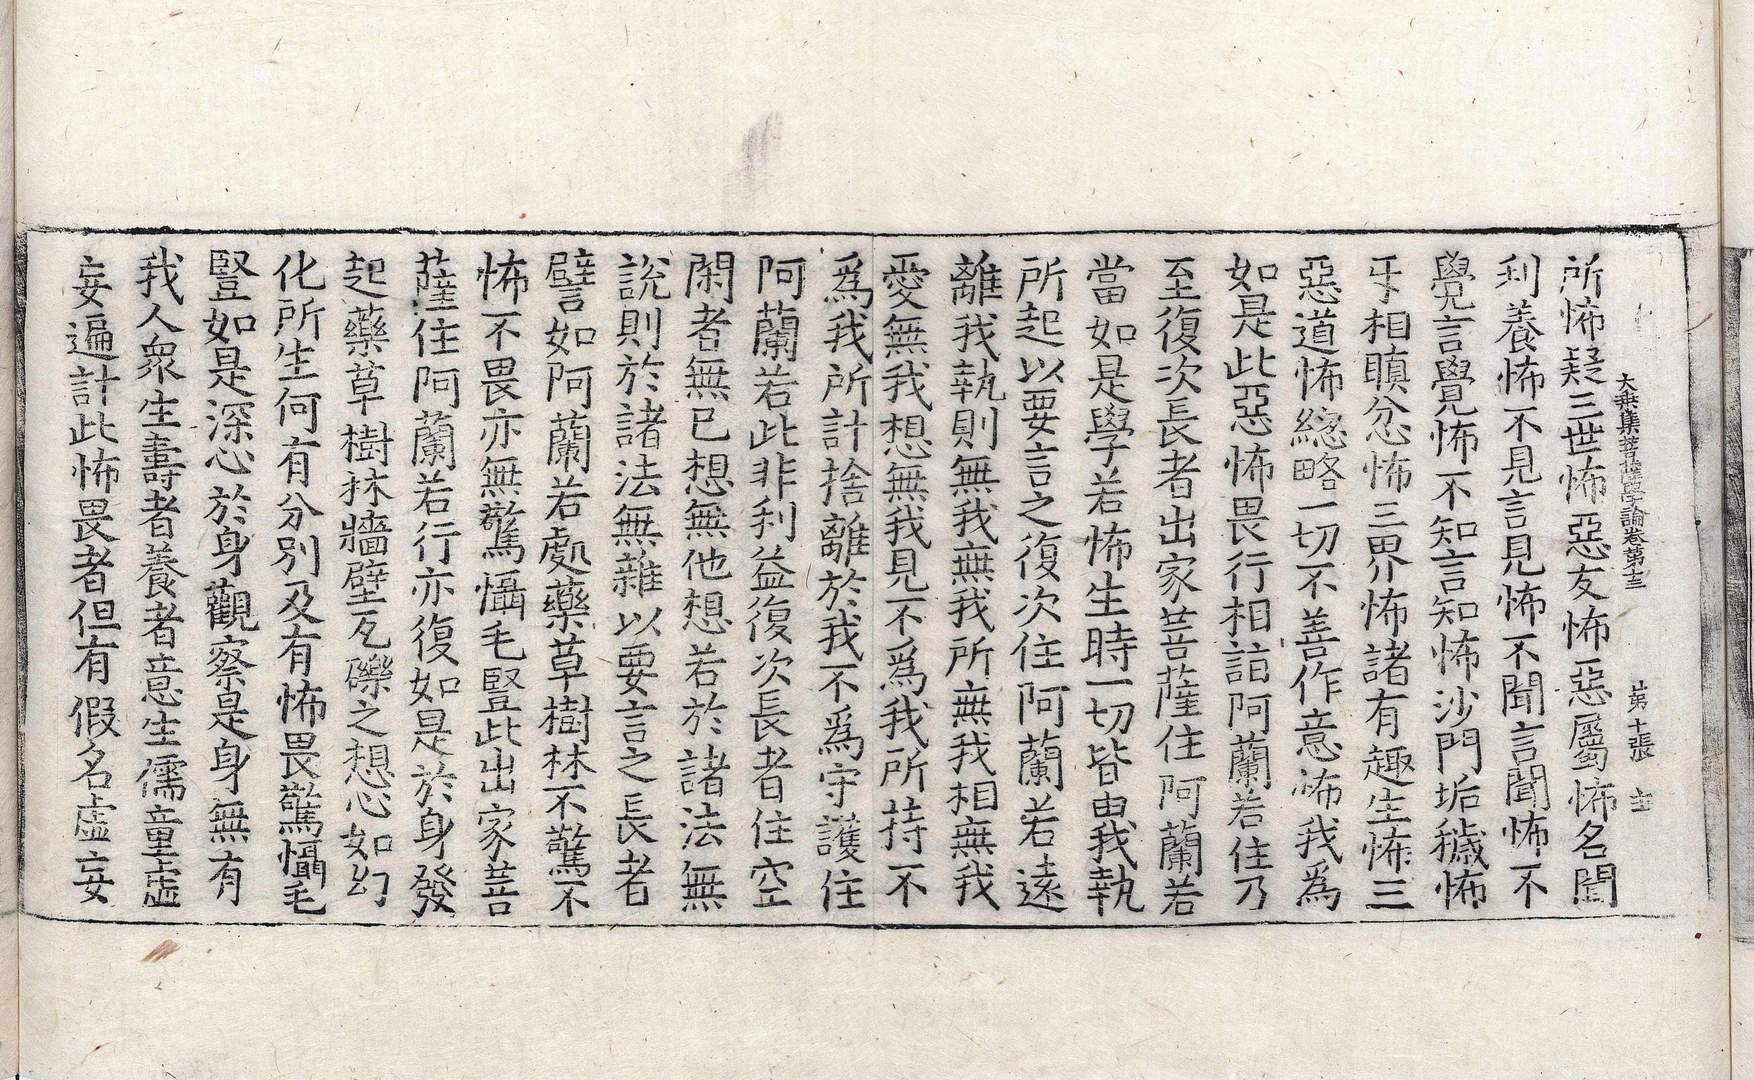 大乘集菩薩學論卷第十三 第十張 主
所怖疑三世怖惡友怖惡屬怖名聞
利養怖不見言見怖不聞言聞怖不
覺言覺怖不知言知怖沙門垢穢怖
牙相瞋忿怖三界怖諸有趣生怖三
惡道怖緫略一切不善作意怖我為
如是此惡怖畏行相詣阿蘭若住乃
至復次長者出家菩薩住阿蘭若
當如是學若怖生時一切皆由我執
所起以要言之復次住阿蘭若遠
離我執則無我無我所無我相無我
愛無我想無我見不為我所持不
為我所計捨離於我不為守護住
阿蘭若此非利益復次長者住空
閑者無已想無他想若於諸法無
說則於諸法無雜以要言之長者
譬如阿蘭若處藥草樹林不驚不
怖不畏亦無驚懾毛豎此出家菩
薩住阿蘭若行亦復如是於身發
起藥草樹林牆壁瓦礫之想心如幻
化所生何有分別及有怖畏驚懾毛
豎如是深心於身觀察是身無有
我人衆生壽者養者意生儒童虛
妄遍計此怖畏者但有假名虛妄